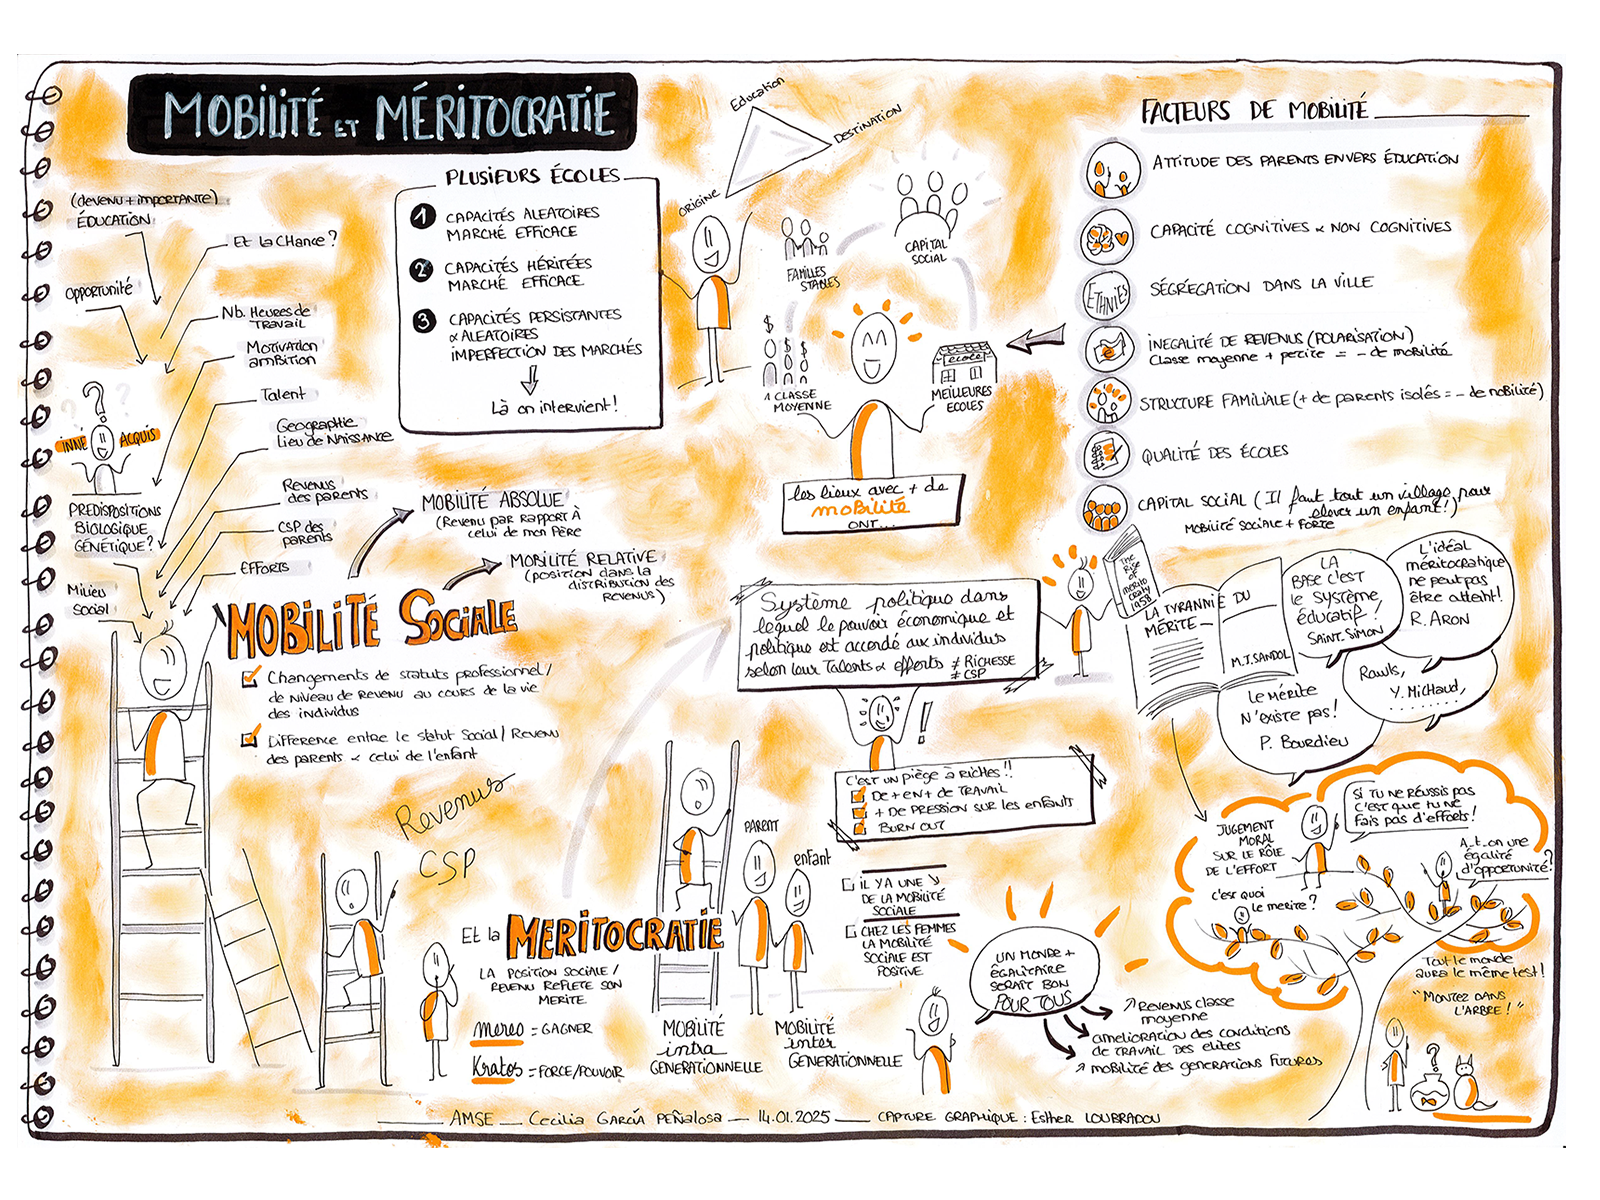 MOBILITÉ ET MÉRITOCRATIE
(devenu + importante)
ÉDUCATION
Et la CHance ?
opportunité
Nb. Heures de
Travail
Motivation
ambition
Talent
Geographie
Lieu de Naissance
INNÉ
ACQUIS
?
Revenus
des parents
PREDISPOSITIONS
BIOLOGIQUE
GÉNÉTIQUE?
CSP des
parents
EFFORTS
Milieu
Social
PLUSIEURS ÉCOLES
1 CAPACITÉS ALEATOIRES
MARCHÉ EFFICACE
2 CAPACITÉS HÉRITÉES
MARCHÉ EFFICACE
3 CAPACITÉS PERSISTANTES
& ALEATOIRES
IMPERFECTION DES MARCHÉS
Là on intervient !
Education
DESTINATION
ORIGINE
FAMILLES
STABLES
CAPITAL
SOCIAL
$
$
$
1 CLASSE
MOYENNE
école
MEILLEURES
ECOLES
les lieux avec + de
mobilité
ONT...
FACTEURS DE MOBILITÉ
ATTITUDE DES PARENTS ENVERS ÉDUCATION
CAPACITÉ COGNITIVES & NON COGNITIVES
ETHNIES
SÉGREGATION DANS LA VILLE
INEGALITÉ DE REVENUS (POLARISATION)
Classe moyenne + petite = - de mobilité
STRUCTURE FAMILIALE (+ de parents isolés = - de mobilité)
QUALITÉ DES ÉCOLES
CAPITAL SOCIAL (Il faut tout un village pour
elever un enfant?)
MOBILITÉ SOCIALE + FORTE
MOBILITÉ ABSOLUE
(Revenu par rapport à
celui de mon Père
MOBILITÉ RELATIVE
(POSITION dans la
DISTRIBUTION des
REVENUS)
MOBILITÉ SOCIALE
Changements de statuts professionnel /
de Niveau de Revenu au cours de la vie
des individus
Difference entre le statut Social / Revenu
des parents & celui de l'enfant
Revenus
CSP
Système politique dans
lequel le pouvoir économique et
politique est accordé aux individus
selon leur Talents & efforts ≠ RICHESSE
≠ CSP
The
Rise
OF
merito
craty
1958
LA TYRANNIE DU
MÉRITE
M.J. SANDOL
LA
BASE C'EST
le SYSTÈME
éducatif !
SAINT. SIMON
L'idéal
méritocratique
ne peut pas
être atteint !
R. ARON
Rawls,
Y. MICHAUD,
........
Le mérite
N'existe pas !
P. Bourdieu
!
C'EST UN PIÈGE À RICHES !!
DE + EN + DE TRAVAIL
+ DE PRESSION SUR LES ENFANTS
BURN OUT
PARENT
enfant
Et la MERITOCRATIE
LA POSITION SOCIALE /
REVENU REFLETE SON
MERITE
mereo = GAGNER
Kratos = FORCE/POUVOIR
MOBILITÉ
intra
GENERATIONNELLE
MOBILITÉ
inter
GENERATIONNELLE
IL Y A UNE ↘
DE LA MOBILITÉ
SOCIALE
CHEZ LES FEMMES
LA MOBILITÉ
SOCIALE EST
POSITIVE
UN MONDE +
ÉGALITAIRE
SERAIT BON
POUR TOUS
↗ REVENUS CLASSE
moyenne
amelioration des conditions
DE TRAVAIL DES ELITES
↗ MOBILITÉ DES GENERATIONS FUTURES
JUGEMENT
MORAL
SUR LE RÔLE
DE L'EFFORT
SI TU NE RÉUSSIS PAS
C'EST QUE TU NE
FAIS PAS D'EFFORTS !
A-t-on une
égalité
d'opportunité ?
c'est quoi
le merite ?
Tout le monde
aura le même test !
"MONTEZ DANS
L'ARBRE !"
?
AMSE — Cecilia GARCÍA PEÑALOSA — 14.01.2025 — CAPTURE GRAPHIQUE : Esther LOUBRADOU